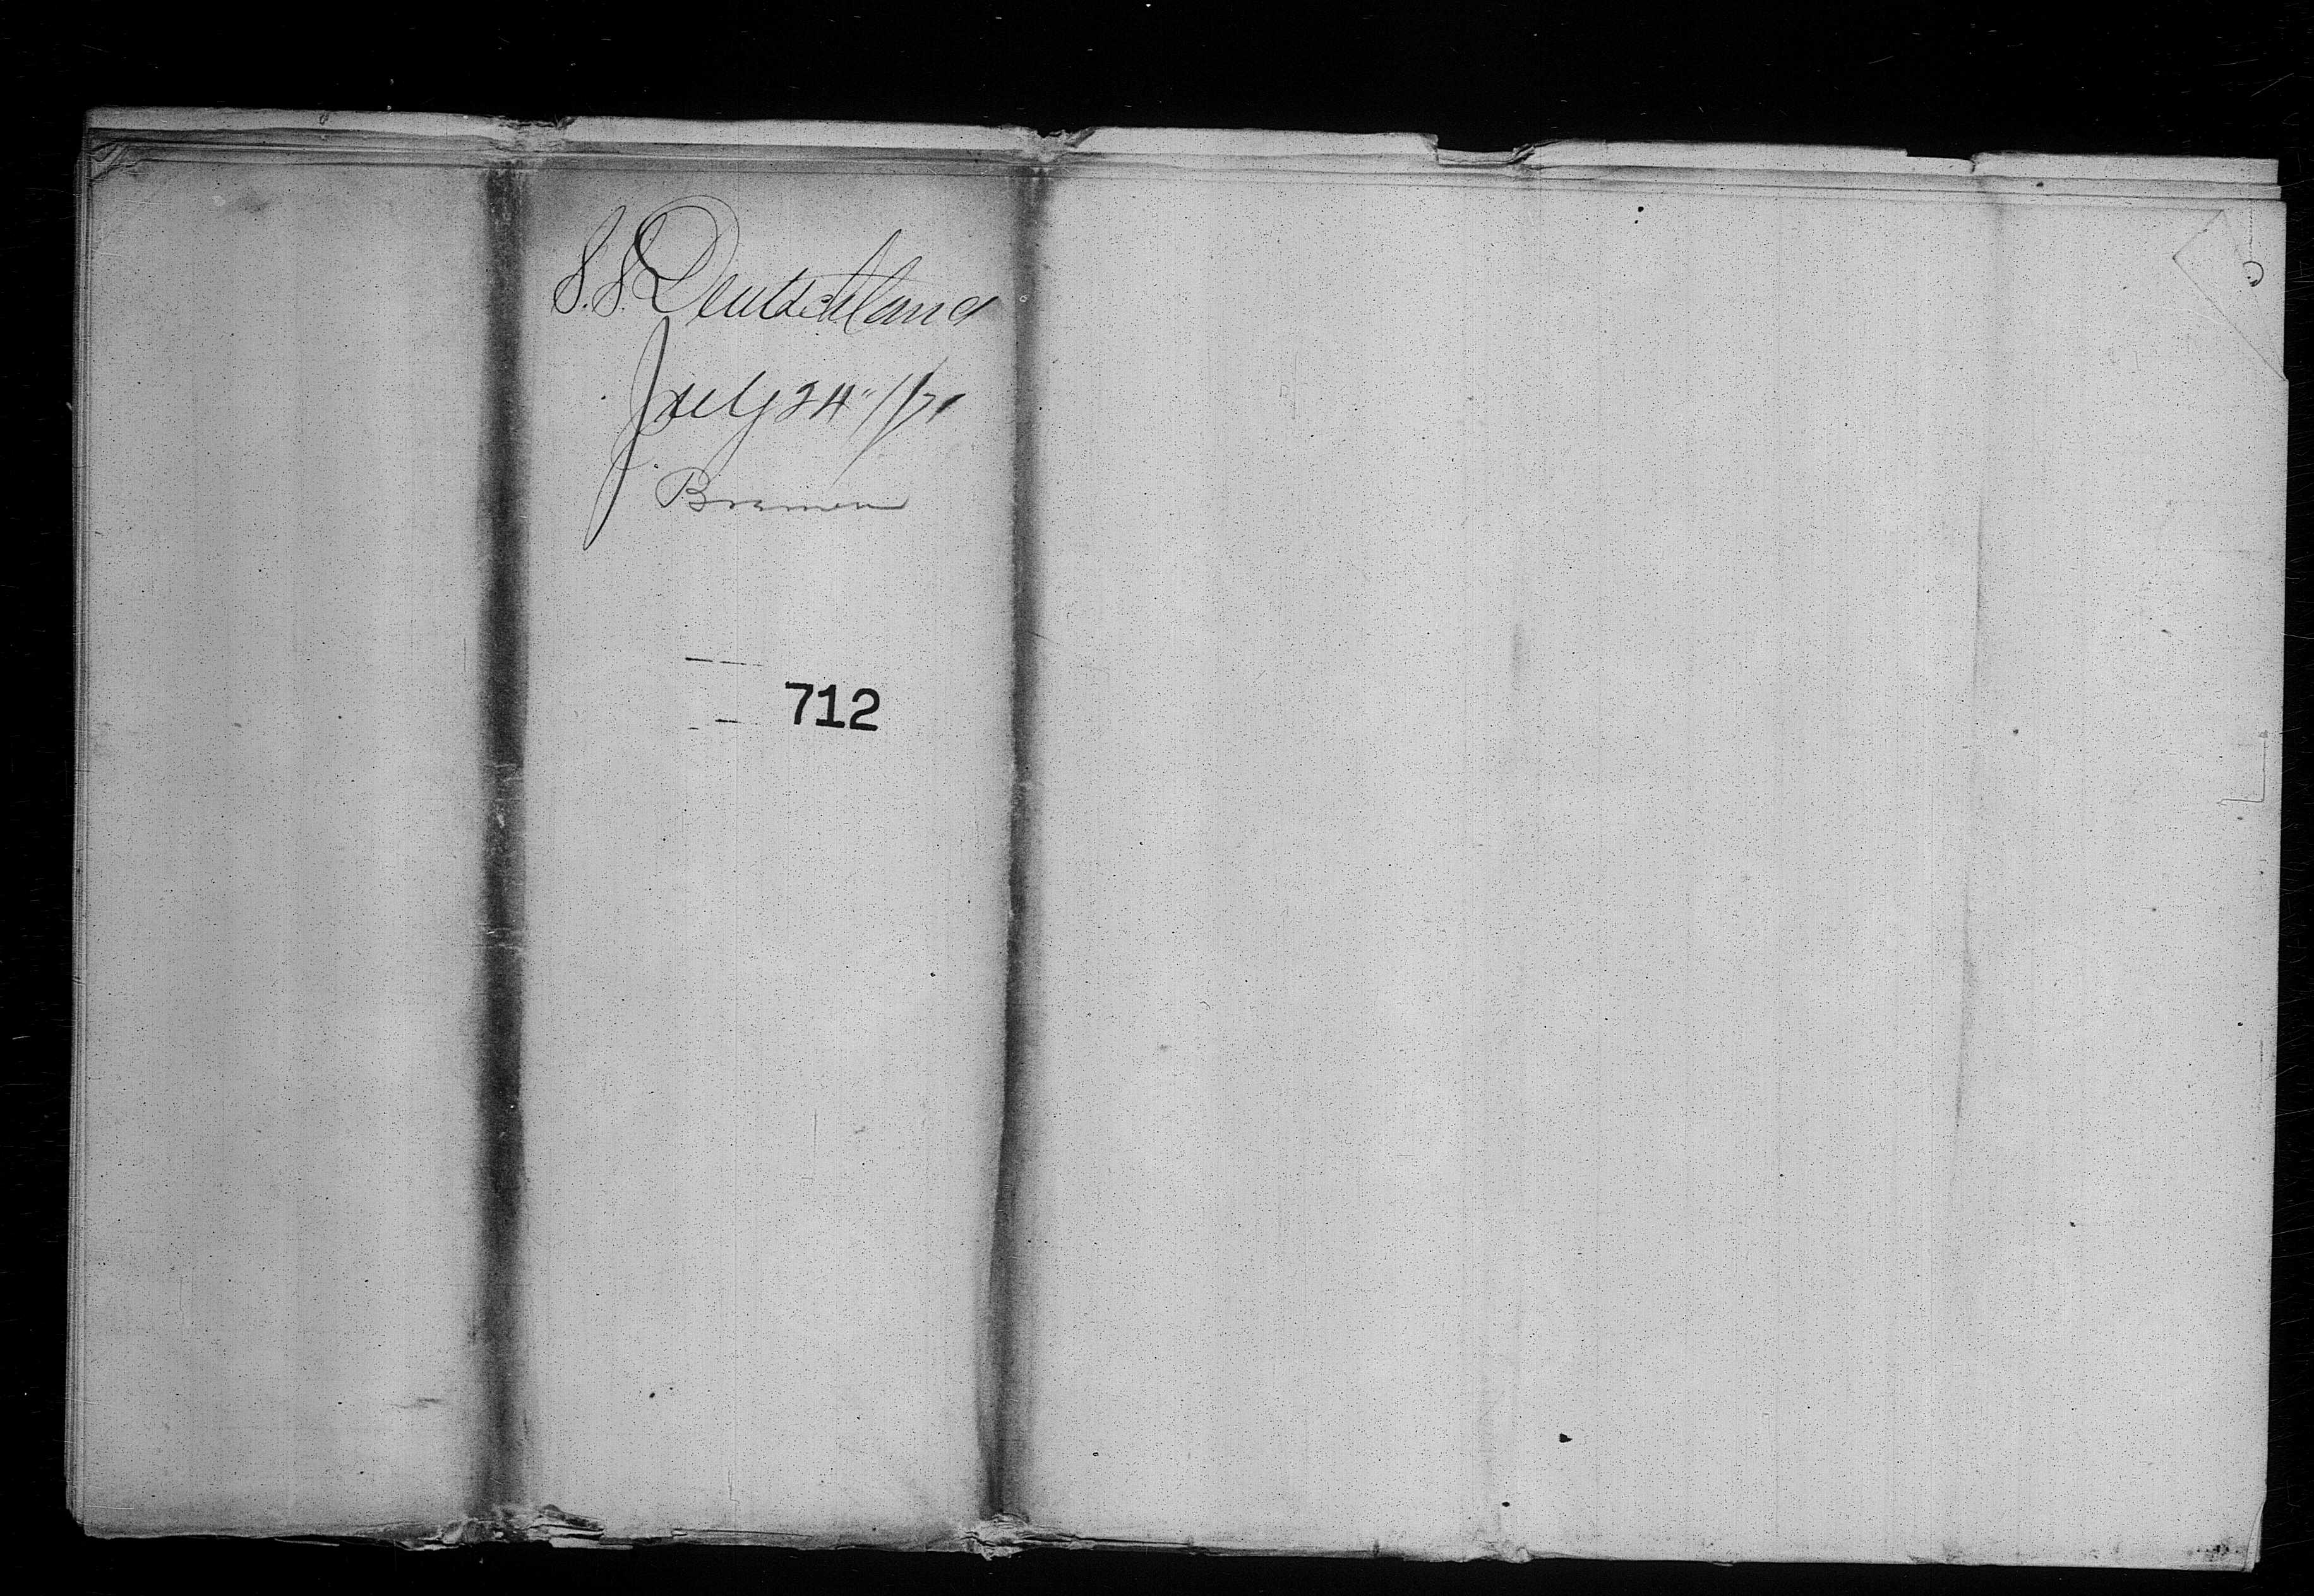 S.S. Deutschland
July 24"/71
Bremen
712